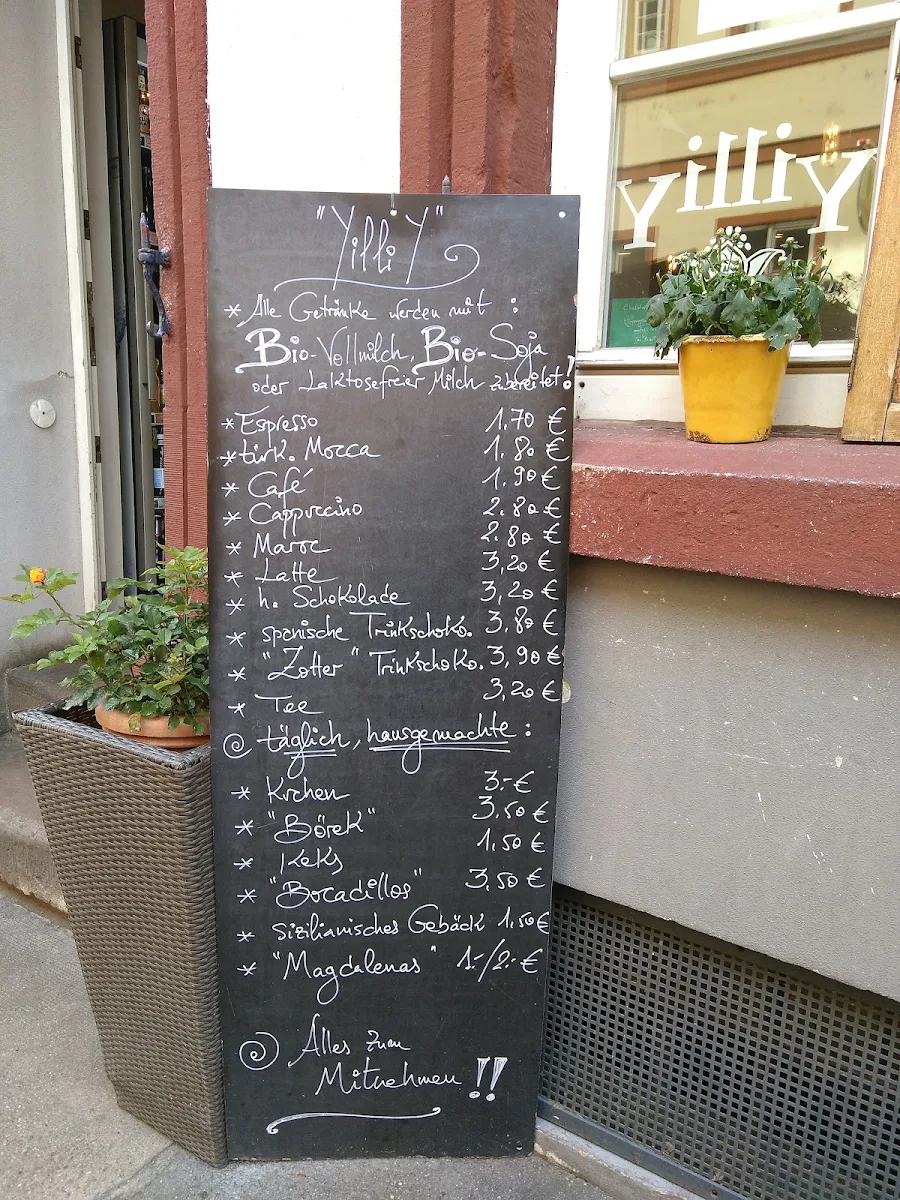 "YilliY"
yilliy
* Alle Getränke werden mit :
Bio-Vollmilch, Bio-Soja
oder Laktosefreier Milch zubereitet!
* Espresso 1.70 €
* türk. Mocca 1.80 €
* Café 1.90 €
* Cappuccino 2.80 €
* Maroc 2.80 €
* Latte 3,20 €
* h. Schokolade 3,20 €
* spanische Trinkschoko. 3,80 €
* "Zotter" Trinkschoko. 3,90 €
* Tee 3,20 €
täglich, hausgemachte :
* Kuchen 3.- €
* "Börek" 3.50 €
* Keks 1,50 €
* "Bocadillos" 3,50 €
* sizilianisches Gebäck 1,50 €
* "Magdalenas" 1.-/2.- €
Alles zum
Mitnehmen !!